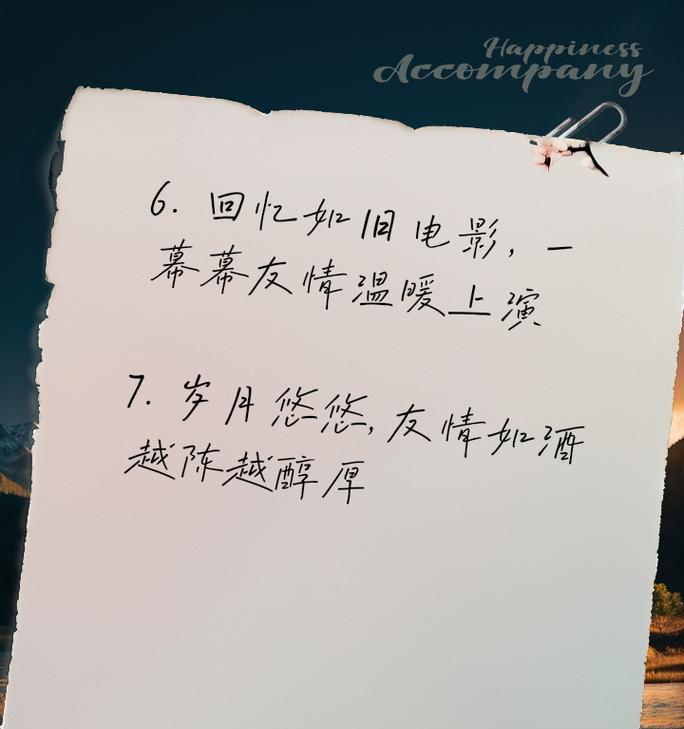 Happiness
Accompany
6. 回忆如旧电影，一
幕幕友情温暖上演
7. 岁月悠悠，友情如酒
越陈越醇厚